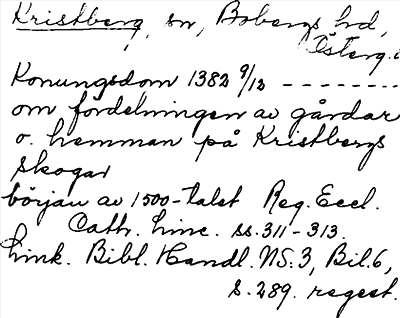 Kristberg, sn, Bobergs hd,
Österg.
Konungsdom 1382 9/12 - - - - - - - -
om fördelningen av gårdar
o. hemman på Kristbergs
skogar
början av 1500-talet Reg. Eccl.
Cath. Linc. ss. 311-313.
Link. Bibl. Handl. NS. 3, Bil. 6,
s. 289. regest.